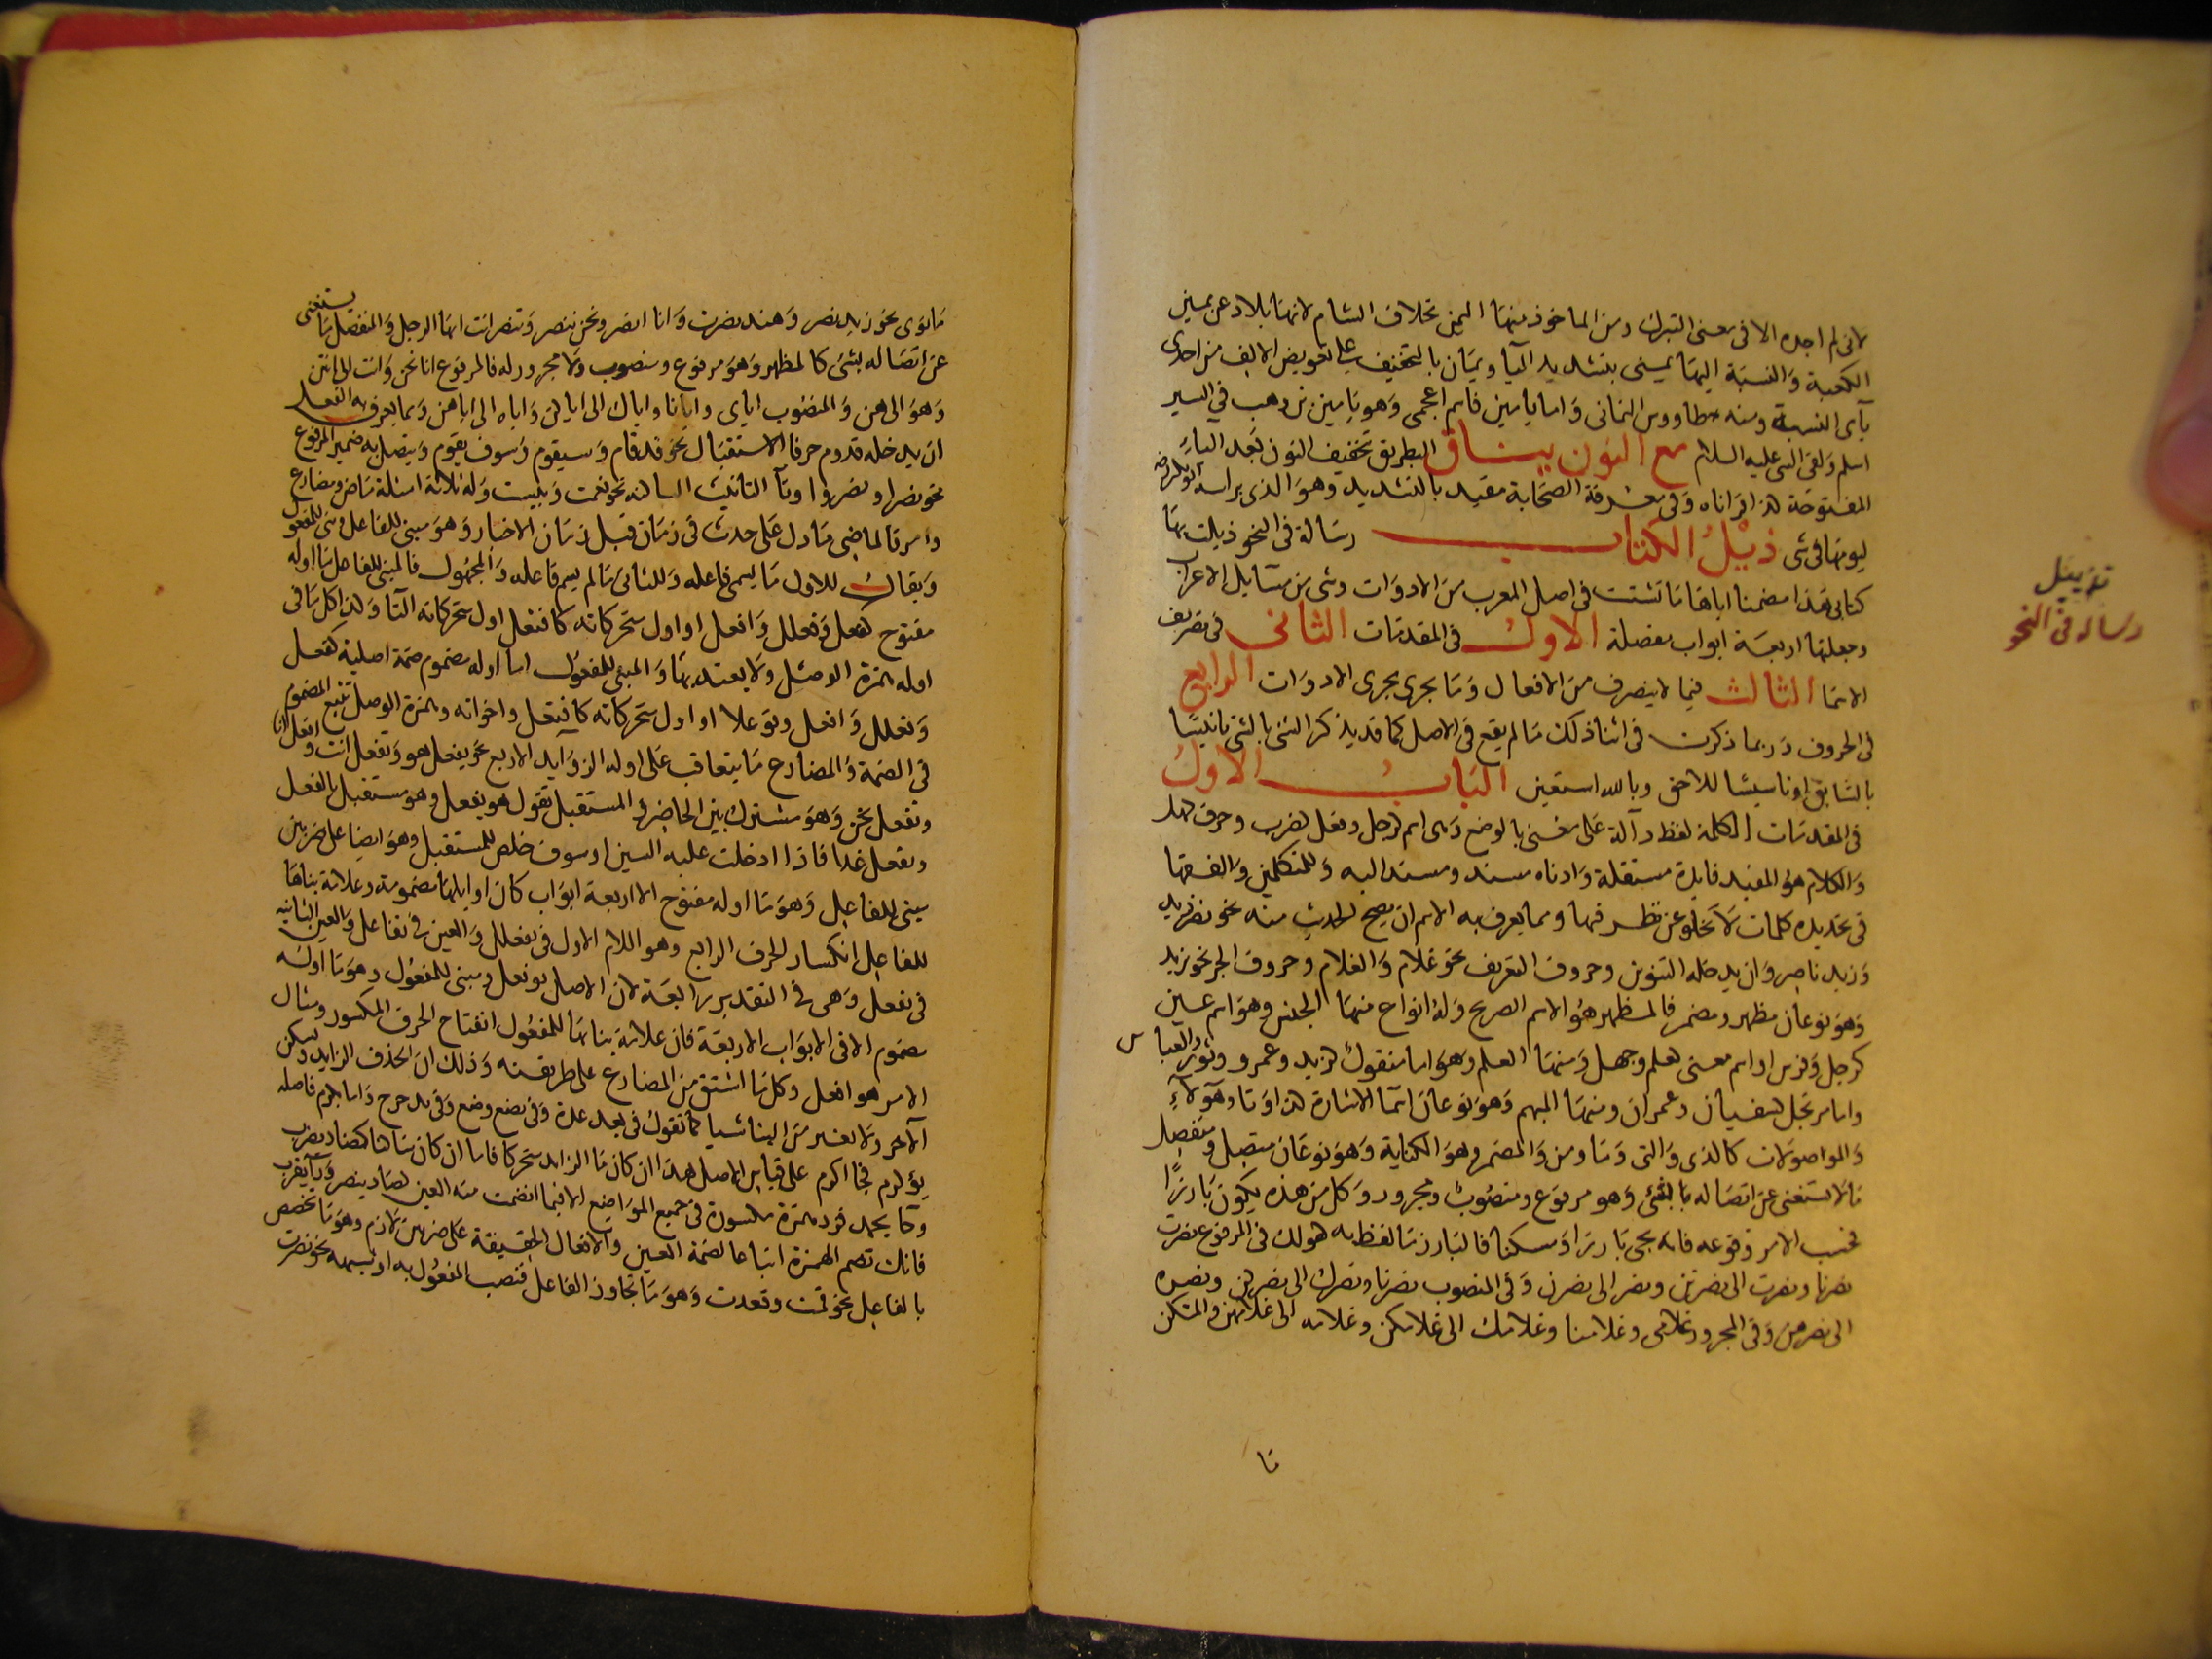 لانى لم اجده الا فى معنى التبرك ومن الماخوذ منها اليمن بخلاف الشام لانها بلاد عن يمين
الكعبة والنسبة اليها يمينى بتشديد اليا ويمان بالتخفيف على تعويض الالف من احدى
يآى النسبة ومنه طاووس اليمانى واما يامين فاسم اعجمى وهو يامين بن وهب فى السير
اسلم ولقى النبى عليه السلام مع النون يناق البطريق تخفيف النون بعد الياء
المفتوحة هكذا قراناه وفى معرفة الصحابة مقيد بالتشديد وهو الذى براسه ابو بكر رضه
ليومها فى شى ذيل الكتاب رسالة فى النحو ذيلت بها
كتابى هذا مضمنا اياها ما تشتت فى اصل المعرب من الادوات وشى من مسايل الاعراب
وجعلتها اربعة ابواب مفصلة الاول فى المقدمات الثانى فى تصريف
الاسما الثالث فيما لا ينصرف من الافعال وما يجرى مجرى الادوات الرابع
فى الحروف وربما ذكرت فى اثنا ذلك ما لم يقع فى الاصل كما قد يذكر الشئ بالشئ تانيسا
بالسابق او تاسيسا للاحق وبالله استعين الباب الاول
فى المقدمات الكلمة لفظ دالة على معنى بالوضع وهى اسم كرجل وفعل كضرب وحرف كهل
والكلام هو المفيد فايدة مستقلة وادناه مسند ومسند اليه وللمتكلمين والفقها
فى تحديده كلمات لا تخلو عن نظر فيها ومما يعرف به الاسم ان يصح الحديث منه نحو نصر زيد
وزيد ناصر وان يدخله التنوين وحروف التعريف نحو غلام والغلام وحروف الجر نحو بزيد
وهو نوعان مظهر ومضمر فالمظهر هو الاسم الصريح وله انواع منها الجنس وهو اسم عين
كرجل وفرس او اسم معنى كعلم وجهل ومنها العلم وهو اما منقول كزيد وعمرو وثور والعباس
واما مرتجل كسفيان وعمران ومنها المبهم وهو نوعان اسما الاشارة كذا وتا وهولاء
والموصولات كالذى والتى وما ومن والمضمر هو الكناية وهو نوعان متصل ومنفصل
ما لا يستغنى عن اتصاله بالشئ وهو مرفوع ومنصوب ومجرور وكل من هذه يكون بارزا
فحسب الامر فوقوعه فانه يجى بارزا ومسكنا فالبارز ما لفظ به هو لك فى المرفوع نصرت
نصرنا ونصرت الى نصرتن ونصر الى نصرن وفى المنصوب نصرنا ونصرك الى نصركن ونصره
الى نصرهن وفى المجرور غلامى وغلامنا وغلامك الى غلامكن وغلامه الى غلامهن والمستكن
ما
تذييل
رسالة فى النحو
ما نوى نحو زيد نصر وهند نصرت وانا انصر ونحن ننصر وتنصر انت ايها الرجل والمنفصل ما يستغنى
عن اتصاله بشئ كالمظهر وهو مرفوع ومنصوب ولا مجرور له فالمرفوع انا نحن وانت الى انتن
وهو الى هن والمنصوب اياى وايانا واياك الى اياكن واياه الى اياهن ومما يعرف به الفعل
ان يدخله قد وحرفا الاستقبال نحو قد قام وسيقوم وسوف يقوم ويتصل به ضمير المرفوع
نحو نصرا ونصروا وتآ التانيث الساكنه نحو نعمت وبئست وله ثلاثة امثلة ماض ومضارع
وامر فالماضى ما دل على حدث فى زمان قبل زمان الاخبار وهو مبنى للفاعل ومبنى للمفعول
ويقال للاول ما يسم فاعله وللثانى ما لم يسم فاعله والمجهول فالمبنى للفاعل ما اوله
مفتوح كفعل وفعلل وافعل او اول متحركاته كافتعل اول متحركاته التا ولذا كل ما فى
اوله همزة الوصل ولا يعتد بها والمبنى للمفعول اما اوله مضموم ضمة اصلية كفعل
وفعلل وافعل وفوعل او اول متحركاته كافتعل واخواته وهمزة الوصل تتبع المضموم
فى الضمة والمضارع ما يتعاقب على اوله الزوايد الاربع نحو يفعل هو وتفعل انت وافعل انا
ونفعل نحن وهو مشترك بين الحاضر والمستقبل تقول هو يفعل وهو مستقبل بالفعل
ويفعل غدا فاذا ادخلت عليه السين او سوف خلص للمستقبل وهو ايضا على ضربين
مبنى للفاعل وهو ما اوله مفتوح الا اربعة ابواب كان اوايلها مضمومة وعلامة بناها
للفاعل انكسار الحرف الرابع وهو اللام الاول فى يفعلل والعين فى يفاعل والعين الثانيه
فى يفعل وهى فى التقدير رابعة لان الاصل يوفعل ومبنى للمفعول وهو ما اوله
مضموم الا فى الابواب الاربعة فان علامة بنائها للمفعول انفتاح الحرف المكسور ومثال
الامر هو افعل وكل ما اشتق من المضارع على طريقته وذلك ان تحذف الزايد ويسكن
الاخر ولا تغير من البنا شيا كما تقول فى تعد عد وفى تضع وضع وفى يدحرج دحرج واما يكرم فاصله
يؤكرم فجا اكرم على قياس الاصل هذا ان كان ما الزايد متحركا فاما ان كان ساكنا كضاد يضرب
وحآ يحمد فزد همزة مكسورة فى جميع المواضع الا فيما انضمت منه العين كصاد ينصر ورآ يقرب
فانك تضم الهمزة اتباعا لضمة العين والافعال الحقيقة على ضربين لازم وهو ما تخصص
بالفاعل نحو قمت وقعدت وهو ما تجاوز الفاعل فنصب المفعول به او شبهه نحو نصرت